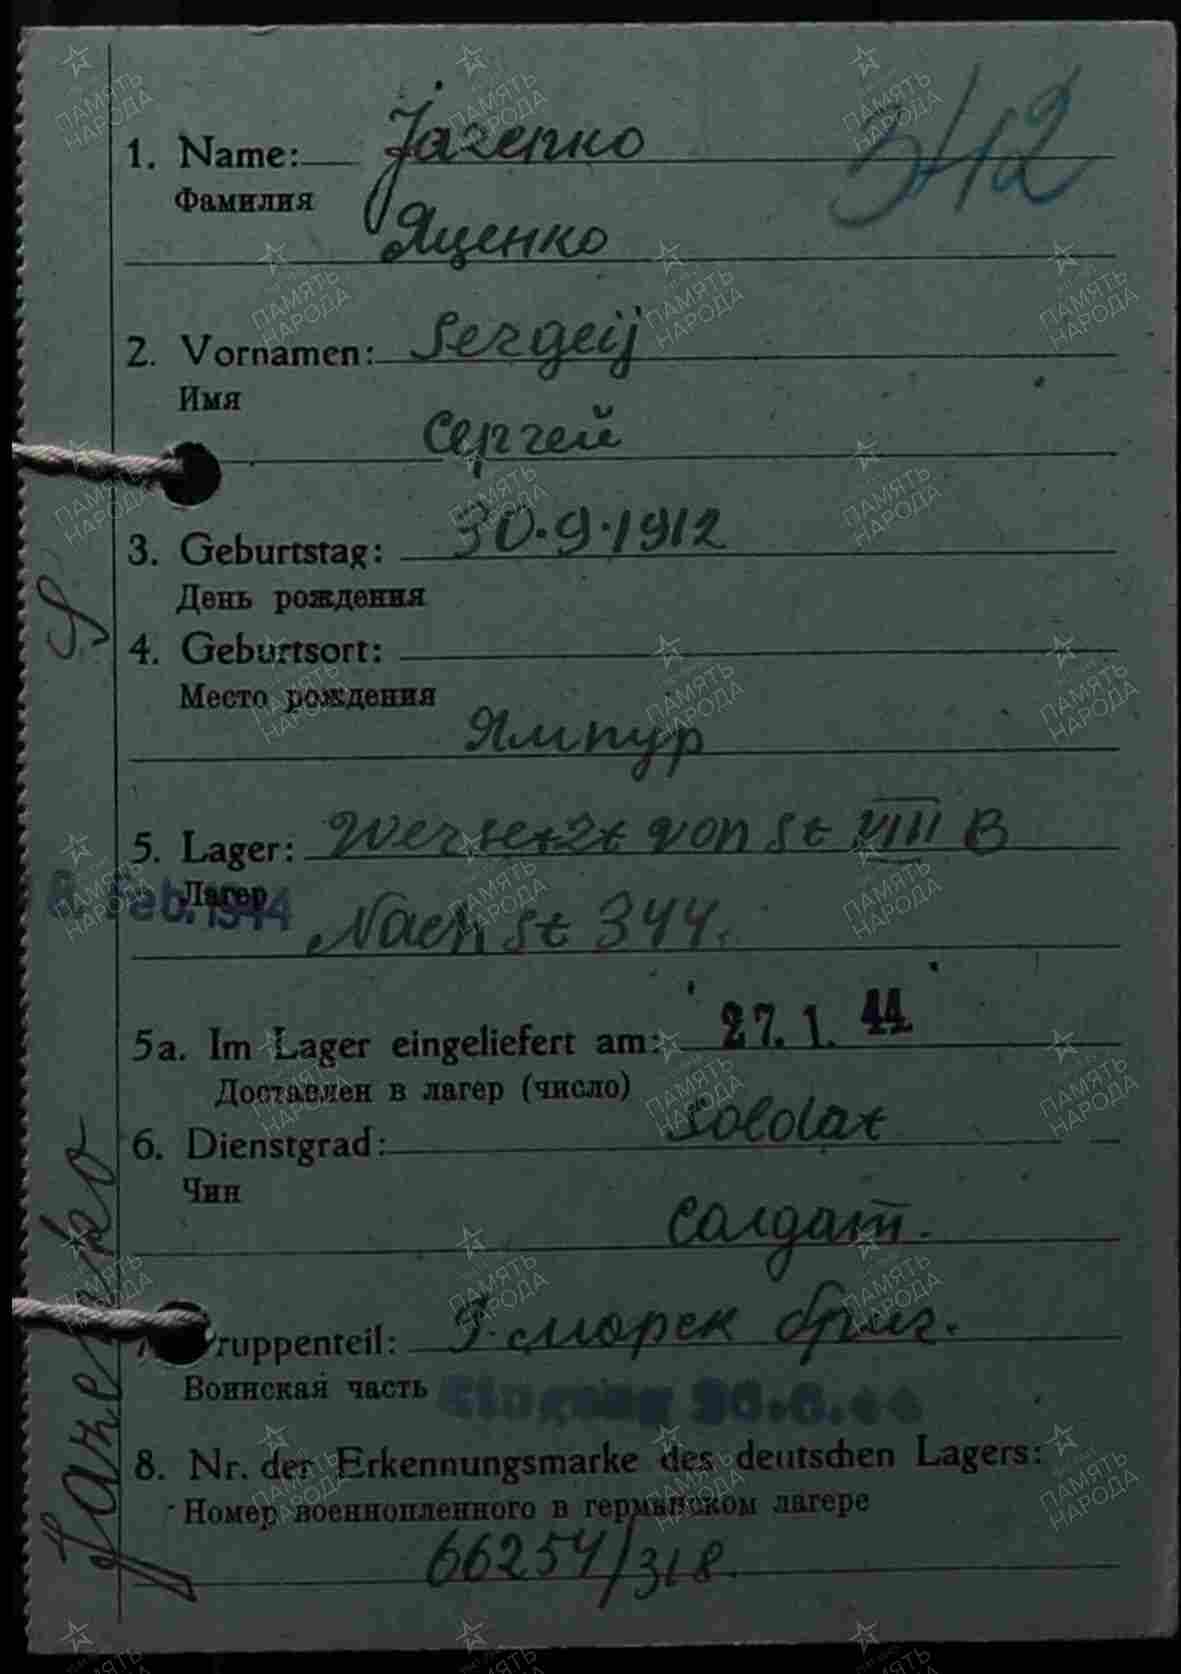 342
1. Name: Jazenko
Фамилия
Яценко
2. Vornamen: Sergeij
Имя
Сергей
3. Geburtstag: 30.9.1912
День рождения
4. Geburtsort:
Место рождения
Ямпур
5. Lager: Wersetzt von St VIII B
Лагер
8. Feb. 1944
Nach St 344.
5a. Im Lager eingeliefert am: 27. 1. 44
Доставлен в лагер (число)
6. Dienstgrad: Soldat
Чин
Салдат.
ruppenteil: морск бриг.
Воинская часть
Eingang
8. Nr. der Erkennungsmarke des deutschen Lagers:
Номер военнопленного в германском лагере
66254/318.
Jazenko
ПАМЯТЬ НАРОДА